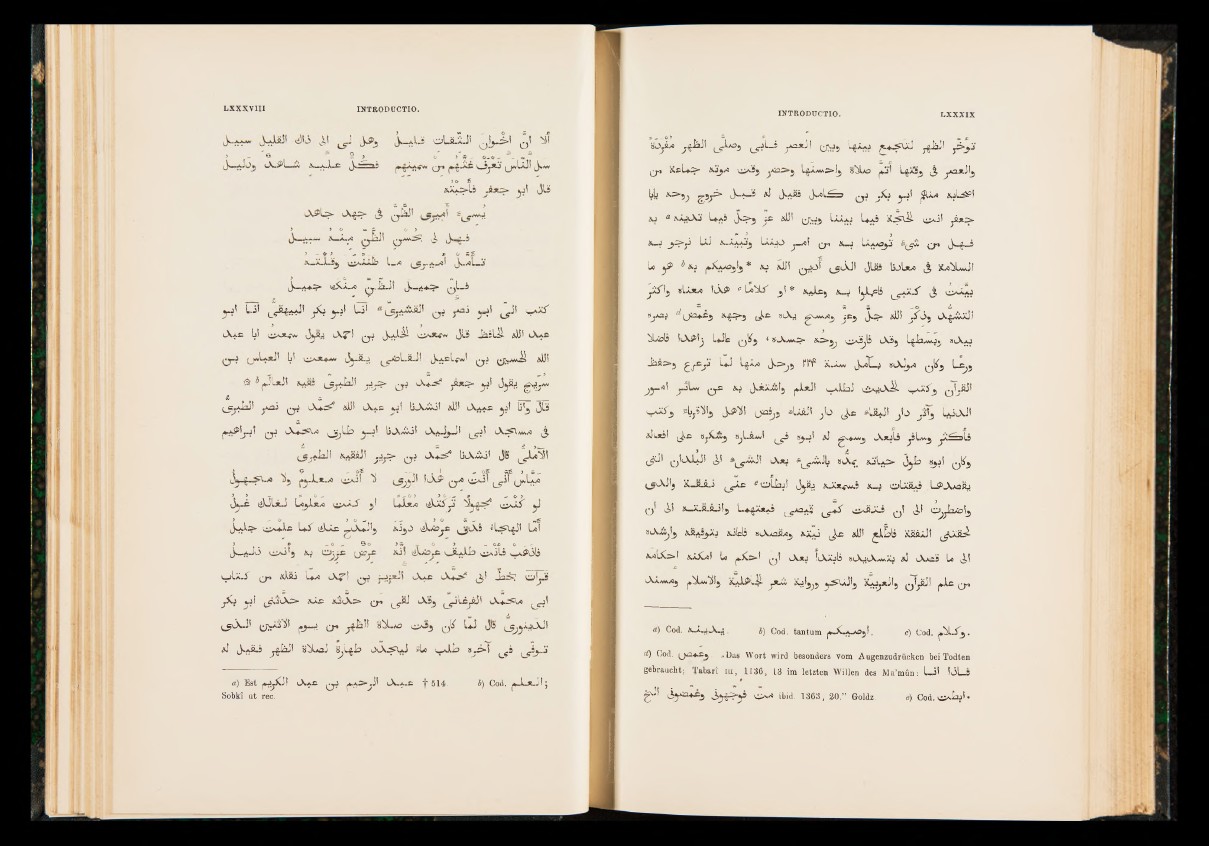 LXXXVIII INTRODUCTIO.
ألا انّ اخـوان الـثـقـات قـليـل وهل لى الى ذاك القليل سبيـل
سل النّاس تعرف غثّهم من سمينهم فكلّ عليه شاهدٌ ودليل
قال ابو جعفر فأجبْتُه
يُسىء أميرى الظنّ فى جهد جاهد
فهل لى بحُسن الظنّ منه سبيل
تأمّل أميرى ما ظننتَ وقُلتَه
فإنّ جميل الظنّ منك جميل
كتب الىّ ابو نصر القشيرىّ a انا ابو بكر البيهقىّ انا ابو
عبد الله الحافظ قال سمعت الخليل بن احمد يقول سمعت ابا عبد
الله الحسين بن اسماعيل القاضى يقول سمعت ابا العباس بن
سريج يقول ابو جعفر محمد بن جرير الطبرىّ فقيه العالَم b ۞
قال وانا ابو عبيد الله انشدنا ابو عبد الله محمد بن نصر الطبرىّ
فى مسجد ابى الوليد انشدنا ابو طارق محمد بن ابراهيم
الآملىّ قال انشدنا محمد بن جرير الفقيه الطبرىّ
ميّاسُ أنّى أنت من هذا الورى لا أنتَ معلومٌ ولا مجهولُ
لو كنتَ مجهولًا تركتك مُعْلَمًا او كنت معلومًا لغالك غولُ
أمّا الهجاء فدقّ عرضك دونه والمدحُ عنك كما علمت جليلُ
فاذهب فأنت طليقُ عرضك أنّه عرضٌ عززتَ به وأنت ذليلُ
قرأت بخط ابى محمد عبد العزيز بن احمد ممّا نقله من كتاب
ابى محمد الفرغانىّ وقد لقى من حدّثه عنه حدّثنى ابو بكر
الدينورىّ قال لمّا كان وقت صلاة الظهر من يوم الاثنين الذى
توفّى فى آخره طلب ماء ليجدّد طهارة لصلاة الظهر فقيل له
a) Est عبد الرحيم بن عبد الكريم † 514. b) Cod. العلم;
Sobkî ut rec.
INTRODUCTIO. LXXXIX
تؤخّر الظهر لتجمع بينها وبين العصر فأبى وصلّى الظهر مفردة
والعصر فى وقتها أتمّ صلاة واحسنها وحضر وقت موته جماعة من
اصحابه منهم ابو بكر بن كامل فقيل له قبل خروج روحه يابا
جعفر انت الحجّة فيما بيننا وبين الله عزّ وجلّ فيما ندينه a به
فهل من شىء توصينا به من امر ديننا وتبيّنه لنا نرجو به
السلامة فى معادنا فقال الذى أدين الله به *واوصيكم به b هو ما
بيّنتُ فى كتبى فاعملوا به وعليه *او كلامًا c هذا معناه واكثر
التشهّد وذكر الله جلّ وعزّ ومسح يده على وجهه وغمض d بصره
بيده وبسطها وقد فارقت روحه جسده، وكان عالما زاهدا فاضلا
ورعًا وكان مولده بآمل سنة ٢٢۴ ورحل منها لمّا ترعرع وحفظ
القرآن وكتب الحديث لطلب العلم واشتغل به عن سائر امور
الدنيا وآثر دار البقاء على دار الفناء ورفض الاهل والاقرباء وكتب
فأكثر وسافر فأبعد وسمح له ابوه فى اسفاره وشكره على افعاله
وكان ابوه طول حياته يمدّه بالشىء بعد الشىء الى البلدان التى
يقصدها فيقتات به فسمعته يقول ابطأت e عنّى نفقة والدى
واضطررت الى ان فتقت كمّى قميصى فبعتهما وانفقته الى ان
لحقتنى النفقة فاطلع الله على نيّته ومقصده فاعانه بتوفيقه وارشده
الى ما قصد له بتسديده فابتدأ بعد ان احكم ما امكنه احكامه
من علم القرآن والعربيّة والنحو ورواية شعر الجاهليّة والاسلام ومسند
a) Cod. b) Cod. tantum اوصيكم. c) Cod. وكلام.
d) Cod. وغمض. „Das Wort wird besonders vom Augenzudrücken bei Todten
gebraucht; Tabarî III, 1136, 13 im letzten Willen des Ma'mûn: فاذا انا
مت فوجهونى وغمضونى الخ ibid. 1363, 20." Goldz. e) Cod. ابطت.